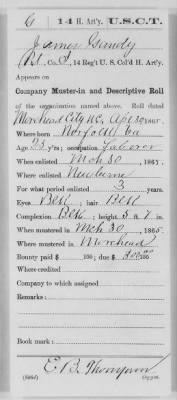 G | 14 H. Art'y. | U.S.C.T.
James Gandy
Pvt, Co. D, 14 Reg't U. S. Col'd H. Art'y.
Appears on
Company Muster-in and Descriptive Roll
of the organization named above. Roll dated
Morehead City NC, Apl 30, 1865.
Where born Norfolk Va
Age 23 y'rs; occupation Laborer
When enlisted Mch 30, 1865.
Where enlisted Newberne
For what period enlisted 3 years.
Eyes Blk; hair Blk
Complexion Blk; height 5 ft. 7 in.
When mustered in Mch 30, 1865.
Where mustered in Morehead
Bounty paid $ 100; due $ 100
Where credited
Company to which assigned
Remarks:
Book mark:
E B Thompson
(356d) Copyist.